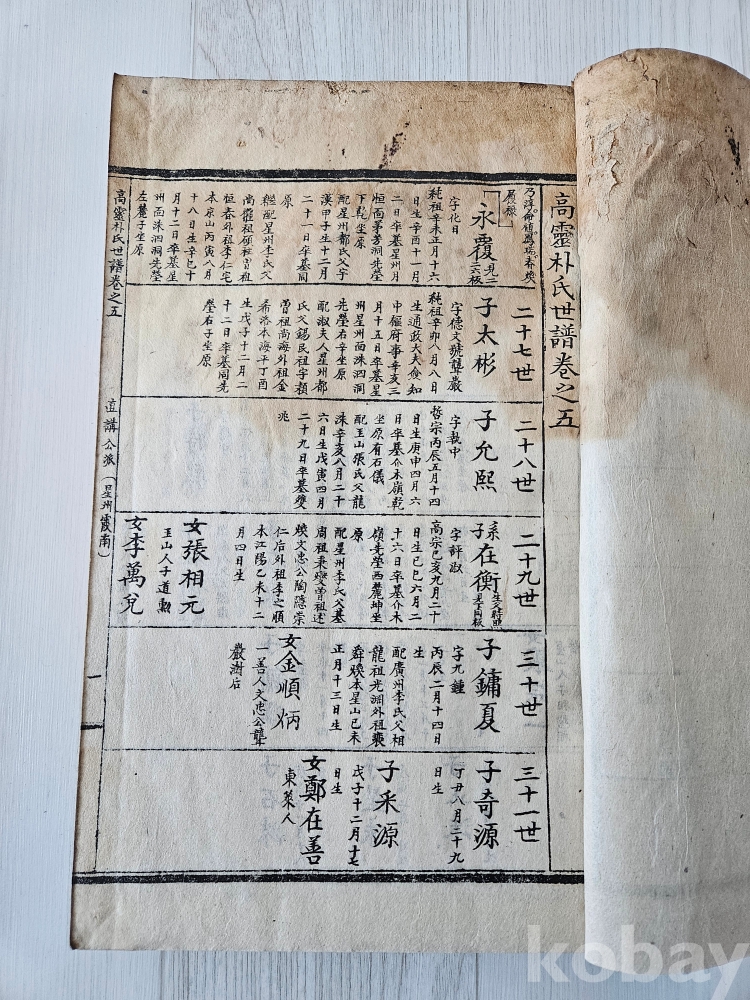 高靈朴氏世譜卷之五
永覆 見一六板
字化日
純祖辛未正月十六
日生辛酉十一月
二日卒墓星州月
恒面茅芳洞先塋
下乾坐原
配星州都氏父宇
漢甲子生十二月
二十一日卒墓同
原
繼配星州李氏父
尚
恒春外祖李仁宅
本京山丙寅六月
十八日生辛巳十
月十二日卒墓星
州面洙泗洞先塋
左麓子坐原
二十七世
子太彬
字德文號龔巖
純祖辛卯八月八日
生通政大夫僉知
中樞府事辛亥三
月十五日卒墓星
州星州面洙泗洞
先塋右辛坐原
配淑夫人星州都
氏父錫民祖宇楨
曾祖尚海外祖金
希洛本海平丁酉
生戊子十二月二
十二日卒墓同先
塋右子坐原
二十八世
子允熙
字敬中
哲宗丙辰五月十四
日生庚申四月六
日卒墓介未嶺乾
坐原有石儀
配玉山張氏父龍
洙辛亥八月二十
六日生戊寅四月
二十九日卒墓雙
兆
二十九世
系子在衡 生父時熙見下同板
字評淑
高宗己亥九月二十
日生己巳六月二
十六日卒墓介未
嶺先塋西麓坤坐
原
配星州李氏父基
周祖秉燮曾祖述
煥文忠公陶隱崇
仁后外祖李之順
本江陽乙未十二
月四日生
女張相元
玉山人子道勲
女李萬兌
三十世
子鏞夏
字九鍾
丙辰二月十四日
生
配廣州李氏父相
龍祖光淵外祖裵
舜煥本星山己未
正月十三日生
女金順炳
一善人文忠公籠
巖澍后
三十一世
子奇源
丁丑八月二十九
日生
子采源
戊子十二月十七
日生
女鄭在善
東萊人
高靈朴氏世譜卷之五
直講公派（星州霞南）
一
kobay